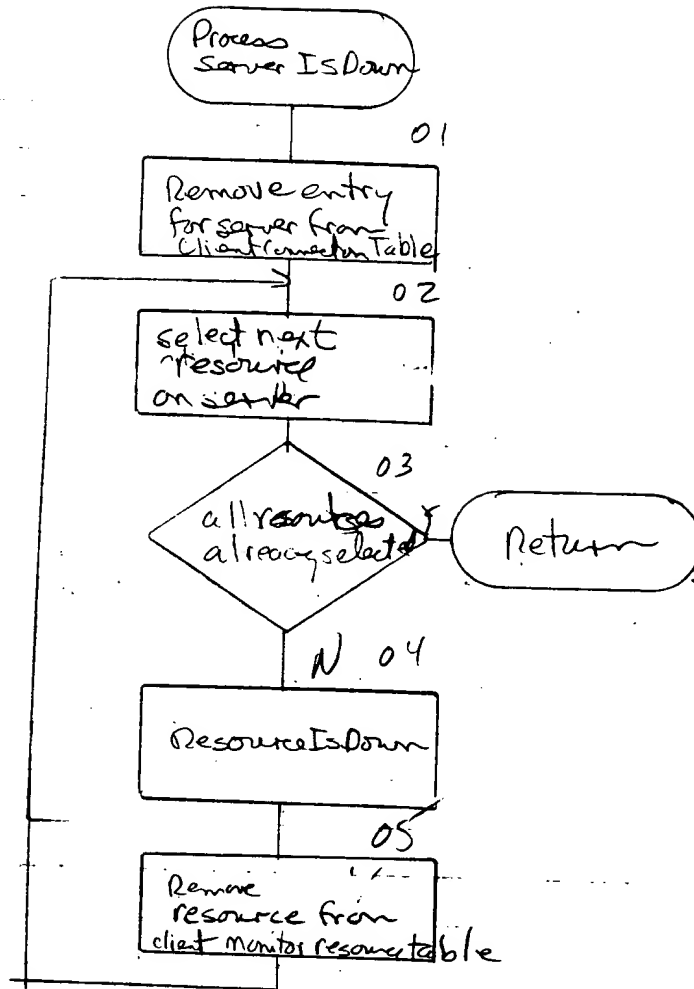 Process
Server IsDown
01
Remove entry
for server from
Client Connection Table
02
select next
resource
on server
03
all resources
already selected
Y
Return
N 04
ResourceIsDown
05
Remove
resource from
client monitor resource table